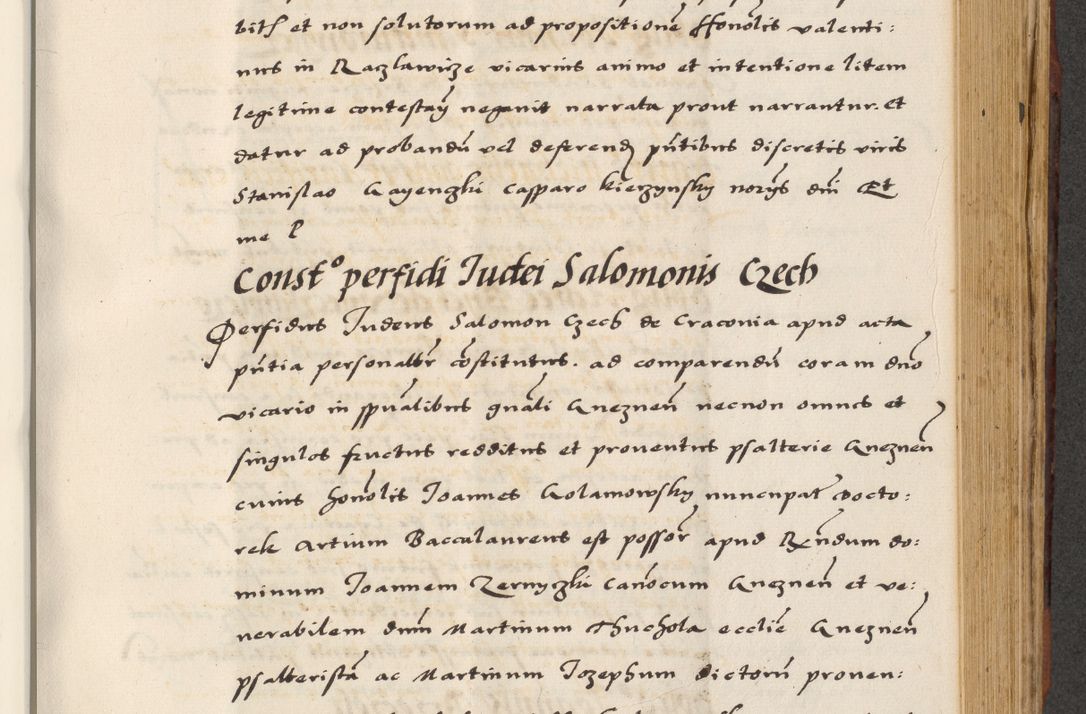 bitꝭ et non solutorum ad propositionē Honolis valenti:
nus in Raczlawicze vicarius animo et intentione litem
legitime contestaň negauit narrata prout narrantur. et
datur ad probandū vel deferend pn̄tibus discretis viris
Stanislao Gayenczki Casparo Kierzynsky norijs dni Et
me P
Const.º perfidi Iudei Salomonis Czech
Perfidus Iudeus Salomon Czech de Craconia apud acta
pn̄tia personalitr cōstitutus. ad comparendū coram dno
vicario in spūalibus gnāli Gneznen̄ necnon omnes et
singulos fructus redditus et prouentus psalterie Gneznen̄
cuius honōlis Ioannes Golamowsky nuncupat Docto:
rek Artium Baccalaureus est possor apud Rn̄dum do:
minum Ioannem Zernyczki Canōcum Gneznen̄ et ve:
nerabilem dnm̄ Martinum Thuchola ecclie Gneznen̄
psalteristā ac Martinum Iozephum dictorū prouen: